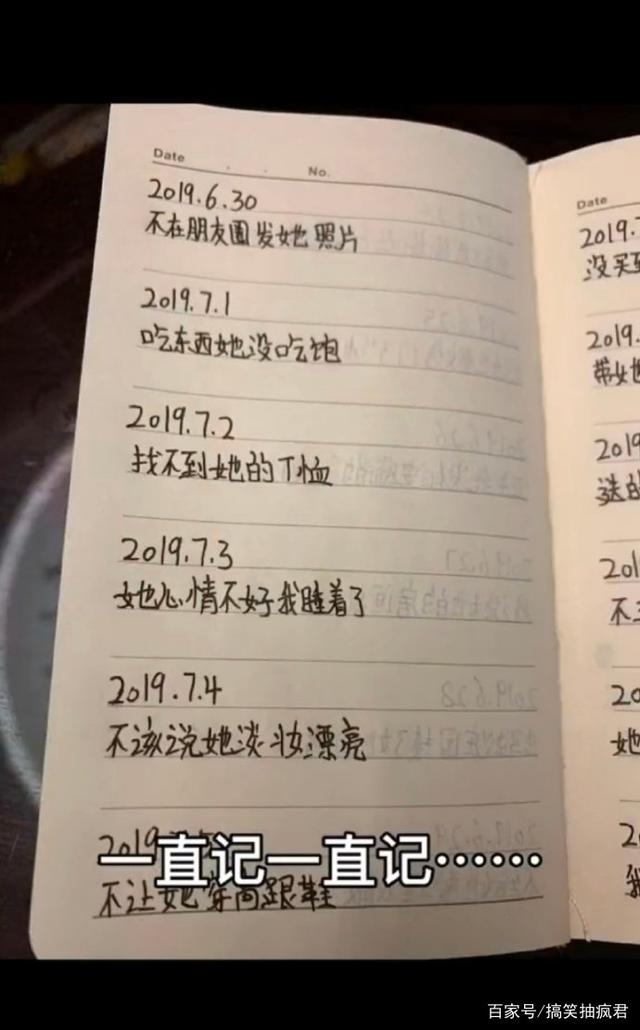 Date . . No.
2019.6.30
不在朋友圈发她照片
2019.7.1
吃东西她没吃饱
2019.7.2
找不到她的T恤
2019.7.3
她心情不好我睡着了
2019.7.4
不该说她淡妆漂亮
2019.
一直记一直记……
不让她穿高跟鞋
Date
2019.
没买
2019.
带她
2019.
选的
201
不
20
她
2
我
百家号/搞笑抽疯君